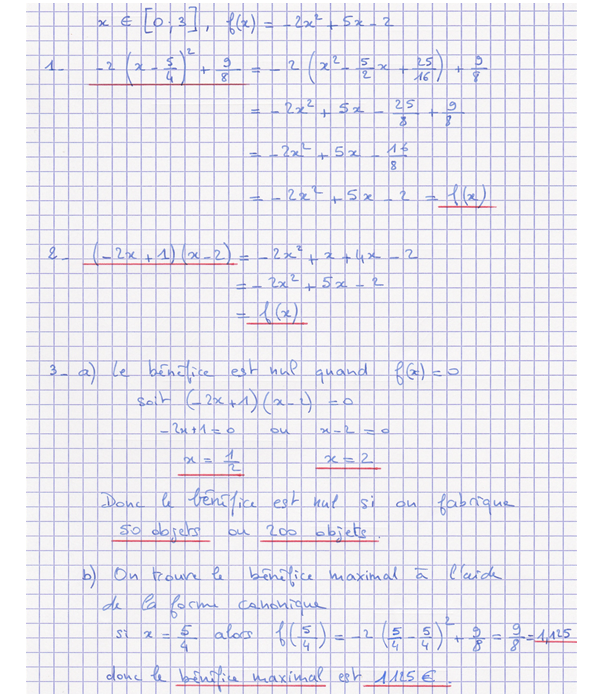 x ∈ [0;3], f(x) = -2x² + 5x - 2
1- -2(x - 5/4)² + 9/8 = -2(x² - 5/2 x + 25/16) + 9/8
= -2x² + 5x - 25/8 + 9/8
= -2x² + 5x - 16/8
= -2x² + 5x - 2 = f(x)
2- (-2x+1)(x-2) = -2x² + x + 4x - 2
= -2x² + 5x - 2
= f(x)
3- a) Le bénéfice est nul quand f(x)=0
soit (-2x+1)(x-2) = 0
-2x+1=0 ou x-2=0
x = 1/2 x = 2
Donc le bénéfice est nul si on fabrique
50 objets ou 200 objets.
b) On trouve le bénéfice maximal à l'aide
de la forme canonique
si x = 5/4 alors f(5/4) = -2(5/4 - 5/4)² + 9/8 = 9/8 = 1,125
donc le bénéfice maximal est 1125 €.